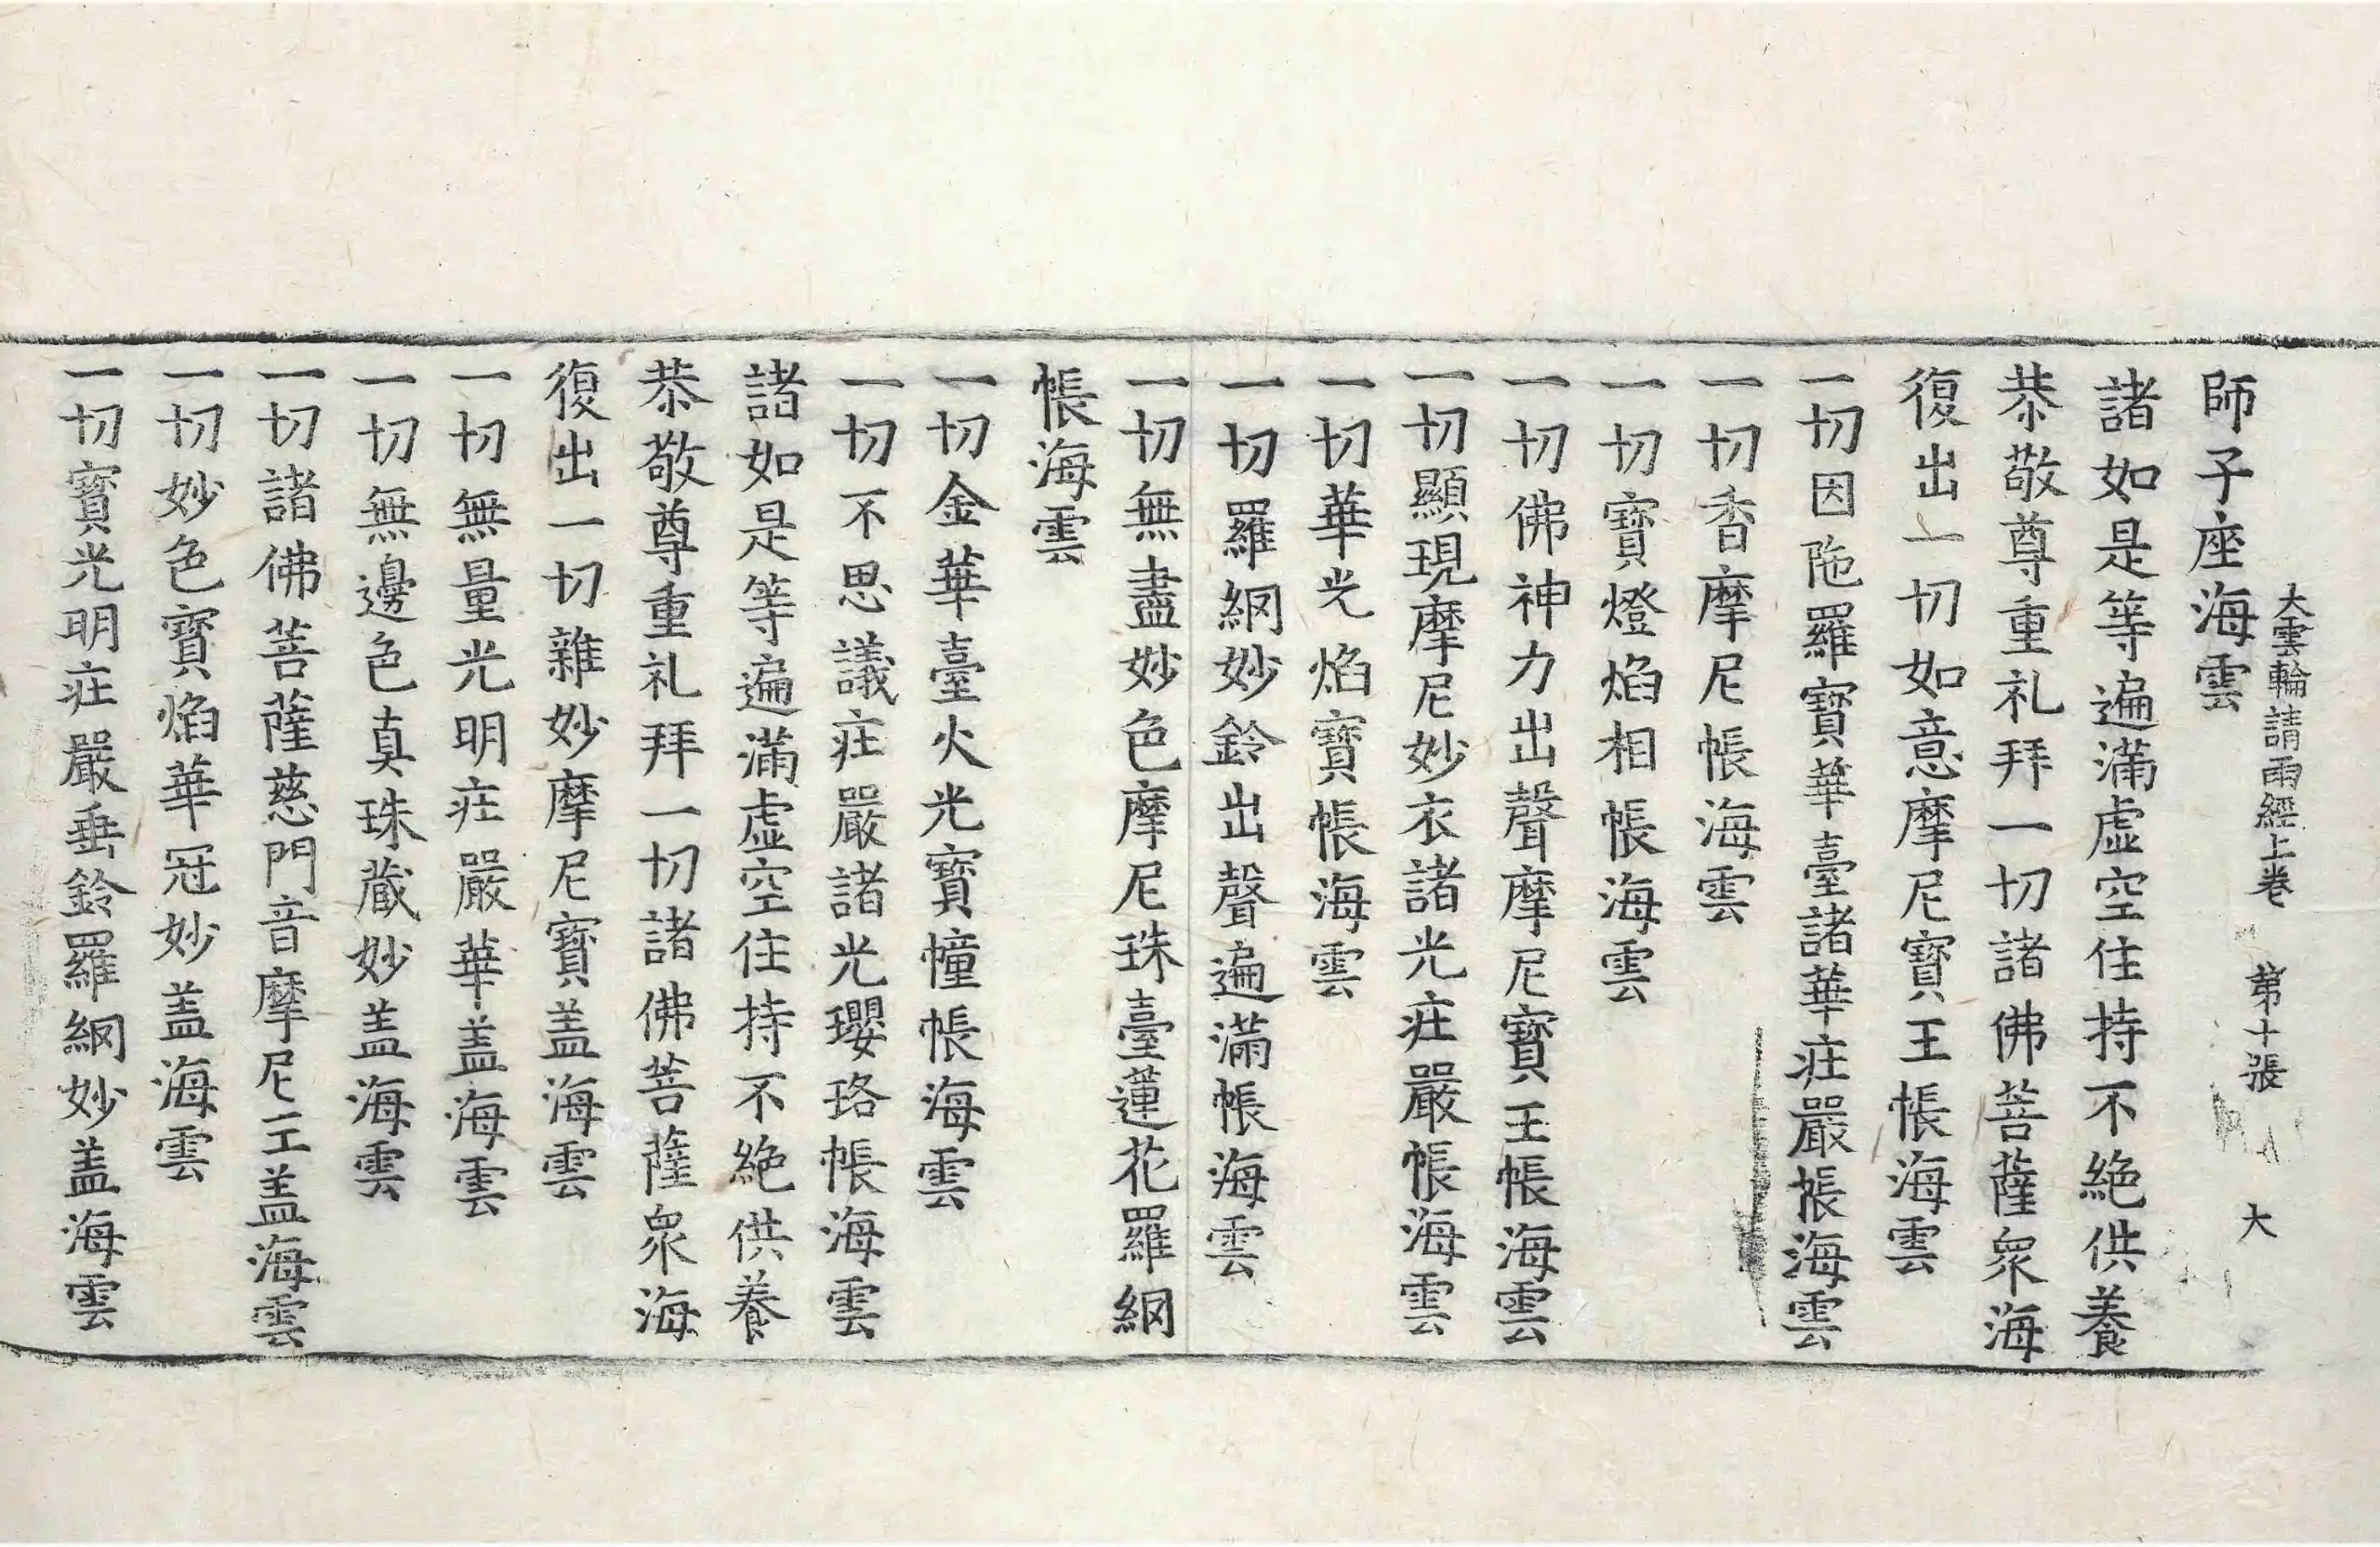 大雲輪請雨經上卷 第十張 大
師子座海雲
諸如是等遍滿虛空住持不絶供養
恭敬尊重礼拜一切諸佛菩薩衆海
復出一切如意摩尼寶王帳海雲
一切因陁羅寶華臺諸華庄嚴帳海雲
一切香摩尼帳海雲
一切寶燈焰相帳海雲
一切佛神力出聲摩尼寶王帳海雲
一切顯現摩尼妙衣諸光庄嚴帳海雲
一切華光焰寶帳海雲
一切羅網妙鈴出聲遍滿帳海雲
一切無盡妙色摩尼珠臺蓮花羅網
帳海雲
一切金華臺火光寶幢帳海雲
一切不思議庄嚴諸光瓔珞帳海雲
諸如是等遍滿虛空住持不絶供養
恭敬尊重礼拜一切諸佛菩薩衆海
復出一切雜妙摩尼寶盖海雲
一切無量光明庄嚴華盖海雲
一切無邊色真珠藏妙盖海雲
一切諸佛菩薩慈門音摩尼王盖海雲
一切妙色寶焰華冠妙盖海雲
一切寶光明庄嚴垂鈴羅網妙盖海雲